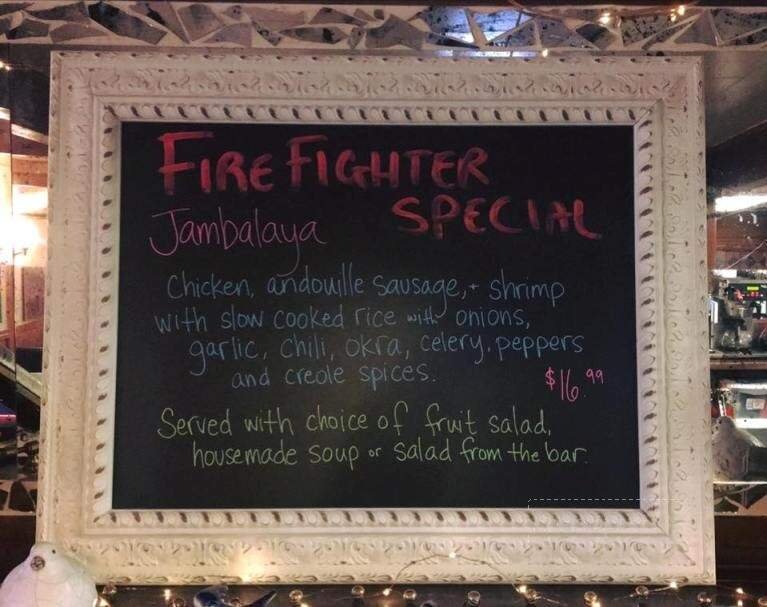 FIRE FIGHTER
SPECIAL
Jambalaya
Chicken, andouille sausage, + shrimp
with slow cooked rice with onions,
garlic, chili, okra, celery, peppers
and creole spices.
$16.99
Served with choice of fruit salad,
housemade soup or salad from the bar.